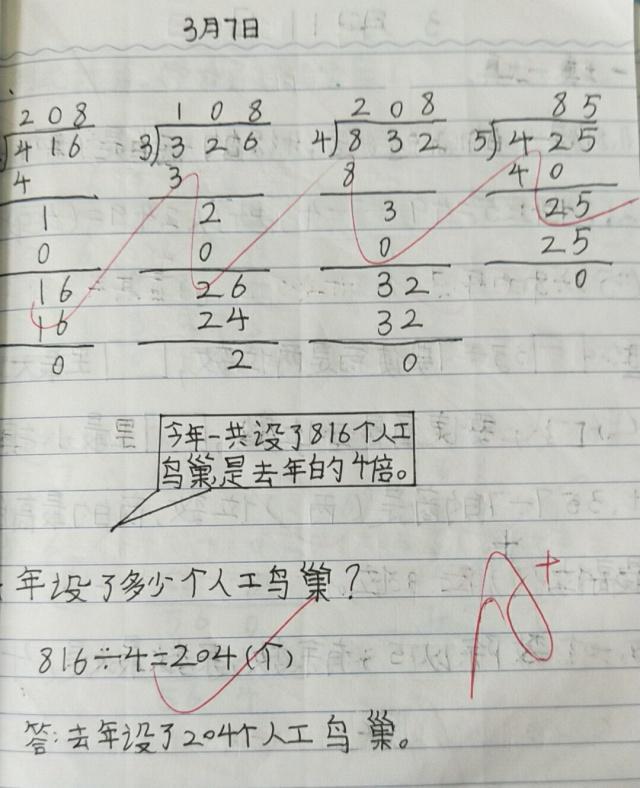 3月7日
208 108 208 85
416 3)326 4)832 5)425
4 3 8 40
1 2 3 25
0 0 0 25
16 26 32 0
16 24 32
0 2 0
今年一共设了816个人工
鸟巢是去年的4倍。
年设了多少个人工鸟巢?
816÷4=204(个)
答:去年设了204个人工鸟巢。
A+